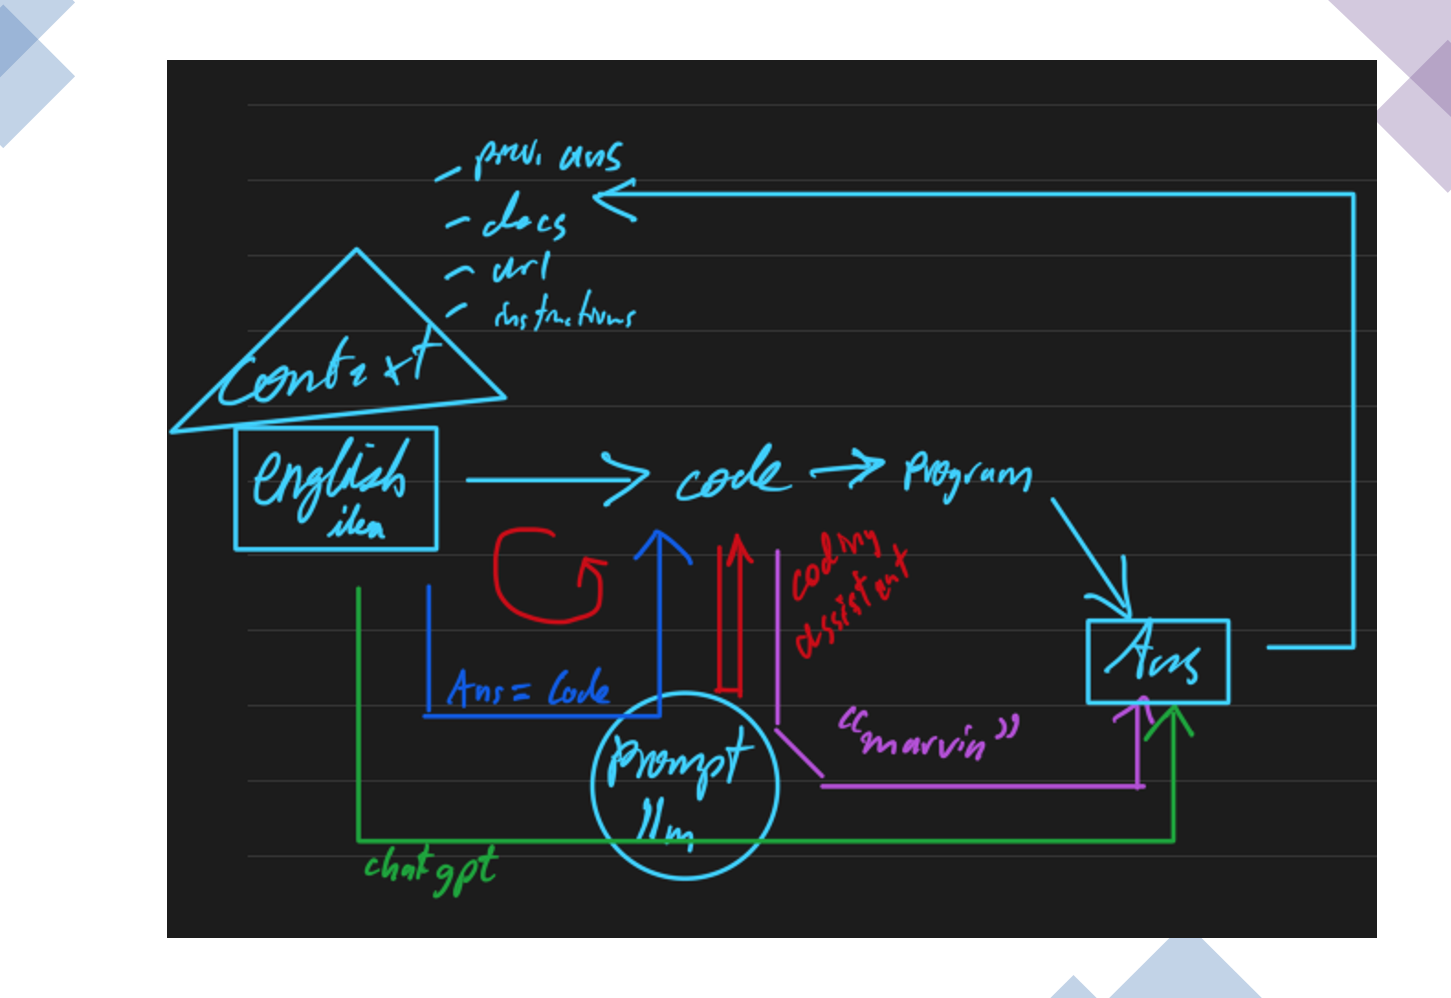 - prev. ans
- docs
- url
- instructions
Context
english
idea
code
program
coding
assistant
Ans
Ans = Code
"marvin"
prompt
llm
chatgpt